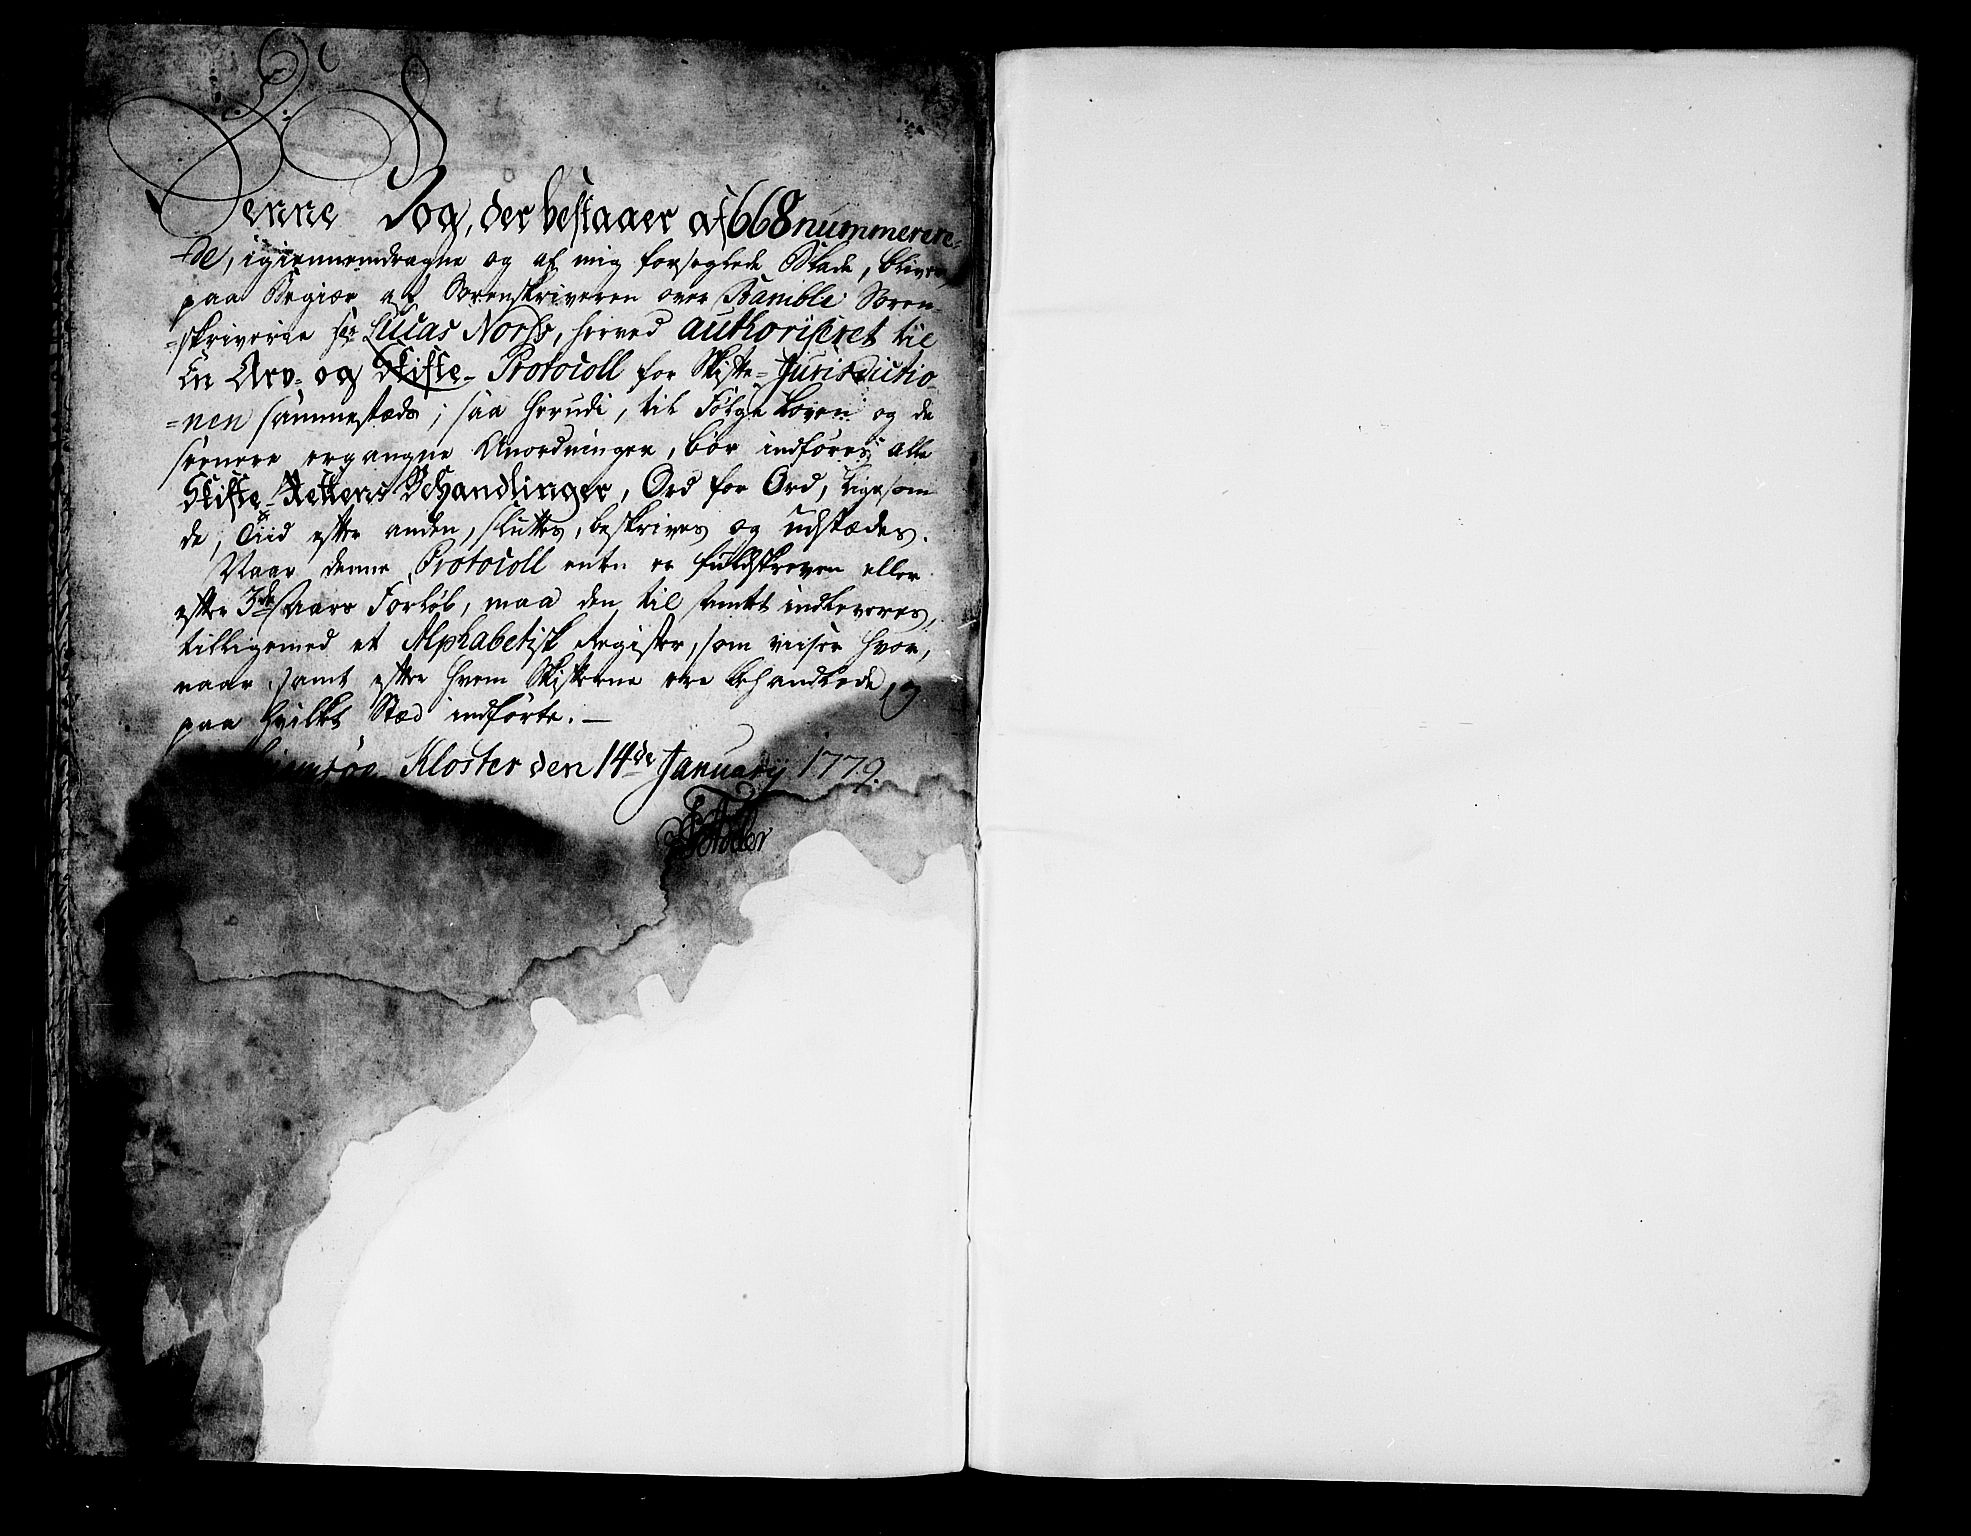 Denne Bog, der bestaaer af 668 nummerere-
de, igiennemdragne og af mig forseglede Blade, bliver,
paa Begiær af Sorenskriveren over Bamble Soren-
=skriverie Hr Lucas Norss, herved authoriseret til
en Arv- og Skifte- Protocoll for Skifte= Jurisdictio-
=nen sammestæds; saa herudi, til Følge Loven og de
seenere ergangne Anordninger, bør indføres alle
Skifte-Rettens Behandlinger, Ord for Ord, ligesom
de, Tiid efter anden, sluttes, beskrives og udstædes.
Naar denne Protocoll enten er fuldskreven eller
efter 3de Aars Forløb, maa den til Amtet indleveres,
tilligemed et Alphabetisk Register, som viiser hvor,
naar samt efter hvem Skifterne ere behandlede, og
paa hvilket Stæd indførte. —
Kloster den 14de January 1779.
Adeler